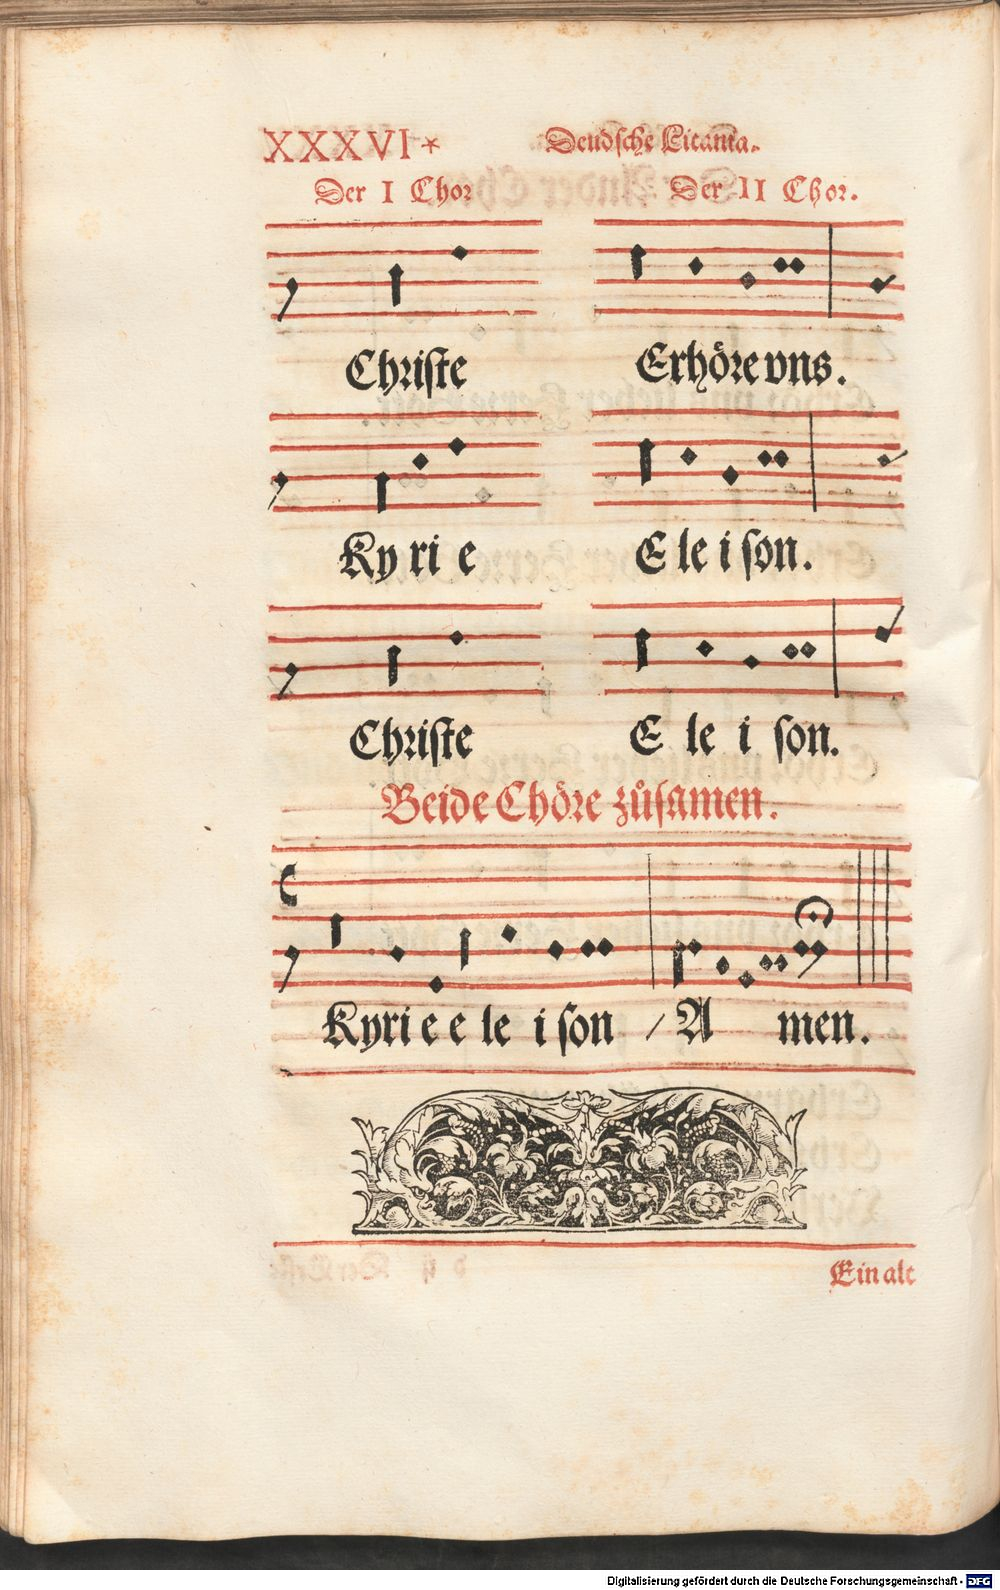 XXXVI* Deudsche Litania.
Der I Chor Der II Chor.
Christe Erhöre vns.
Ky ri e E le i son.
Christe E le i son.
Beide Chöre zůsamen.
Kyri e e le i son / A men.
Ein alt
Digitalisierung gefördert durch die Deutsche Forschungsgemeinschaft - DFG